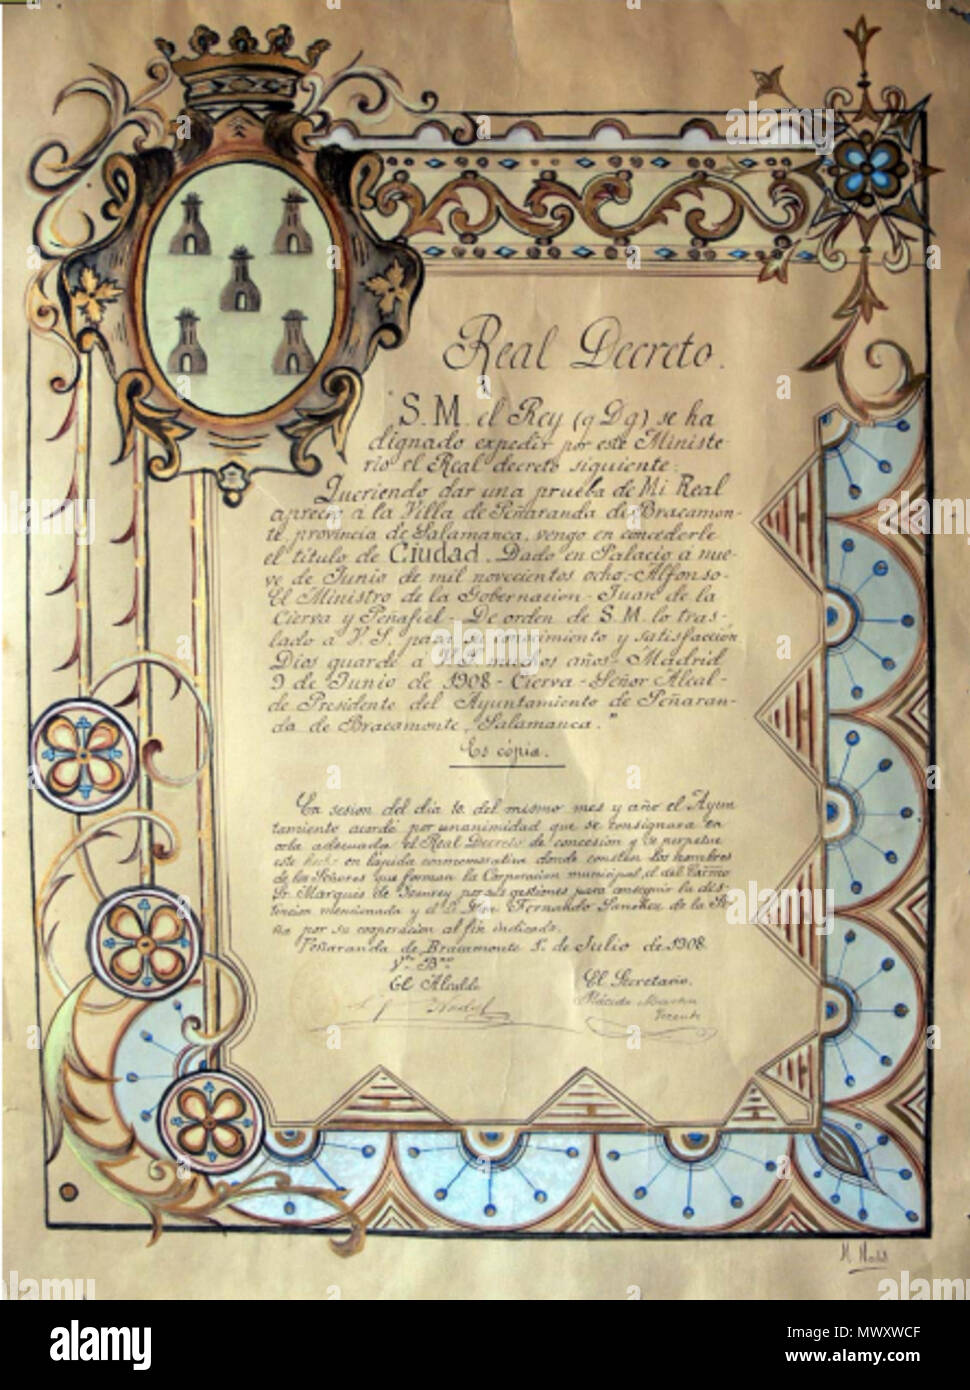 Real Decreto.
"S.M. el Rey (q Dg) se ha
dignado expedir por este Ministe-
rio el Real decreto siguiente:
Queriendo dar una prueba de Mi Real
aprecio á la Villa de Peñaranda de Bracamon-
te, provincia de Salamanca, vengo en concederle
el título de Ciudad. Dado en Palacio á nue-
ve de Junio de mil novecientos ocho.- Alfonso-
El Ministro de la Gobernacion - Juan de la
Cierva y Peñafiel - De orden de S.M. lo tras-
lado á V. S. para su conocimiento y satisfacción
Dios guarde á V. S. muchos años - Madrid
9 de Junio de 1908 - Cierva - Señor Alcal-
de Presidente del Ayuntamiento de Peñaran-
da de Bracamonte, Salamanca."
Es cópia.
En sesion del dia 10 del mismo mes y año el Ayun
tamiento acordó por unanimidad que se consignara en
orla adecuada el Real Decreto de concesion y se perpetue
este hecho en lápida conmemorativa donde consten los nombres
de los Señores que forman la Corporacion municipal, el del
Sr. Marqués de por sus gestiones para conseguir la dis-
tincion mencionada y el D. Fernando Sanchez de la Pe-
ña por su cooperacion al fin indicado.
Peñaranda de Bracamonte 1º. de Julio de 1908.
Vto. Bno.
El Alcalde El Secretario.
Plácido Martin
Vicente
alamy
Image ID: MWXWCF
www.alamy.com